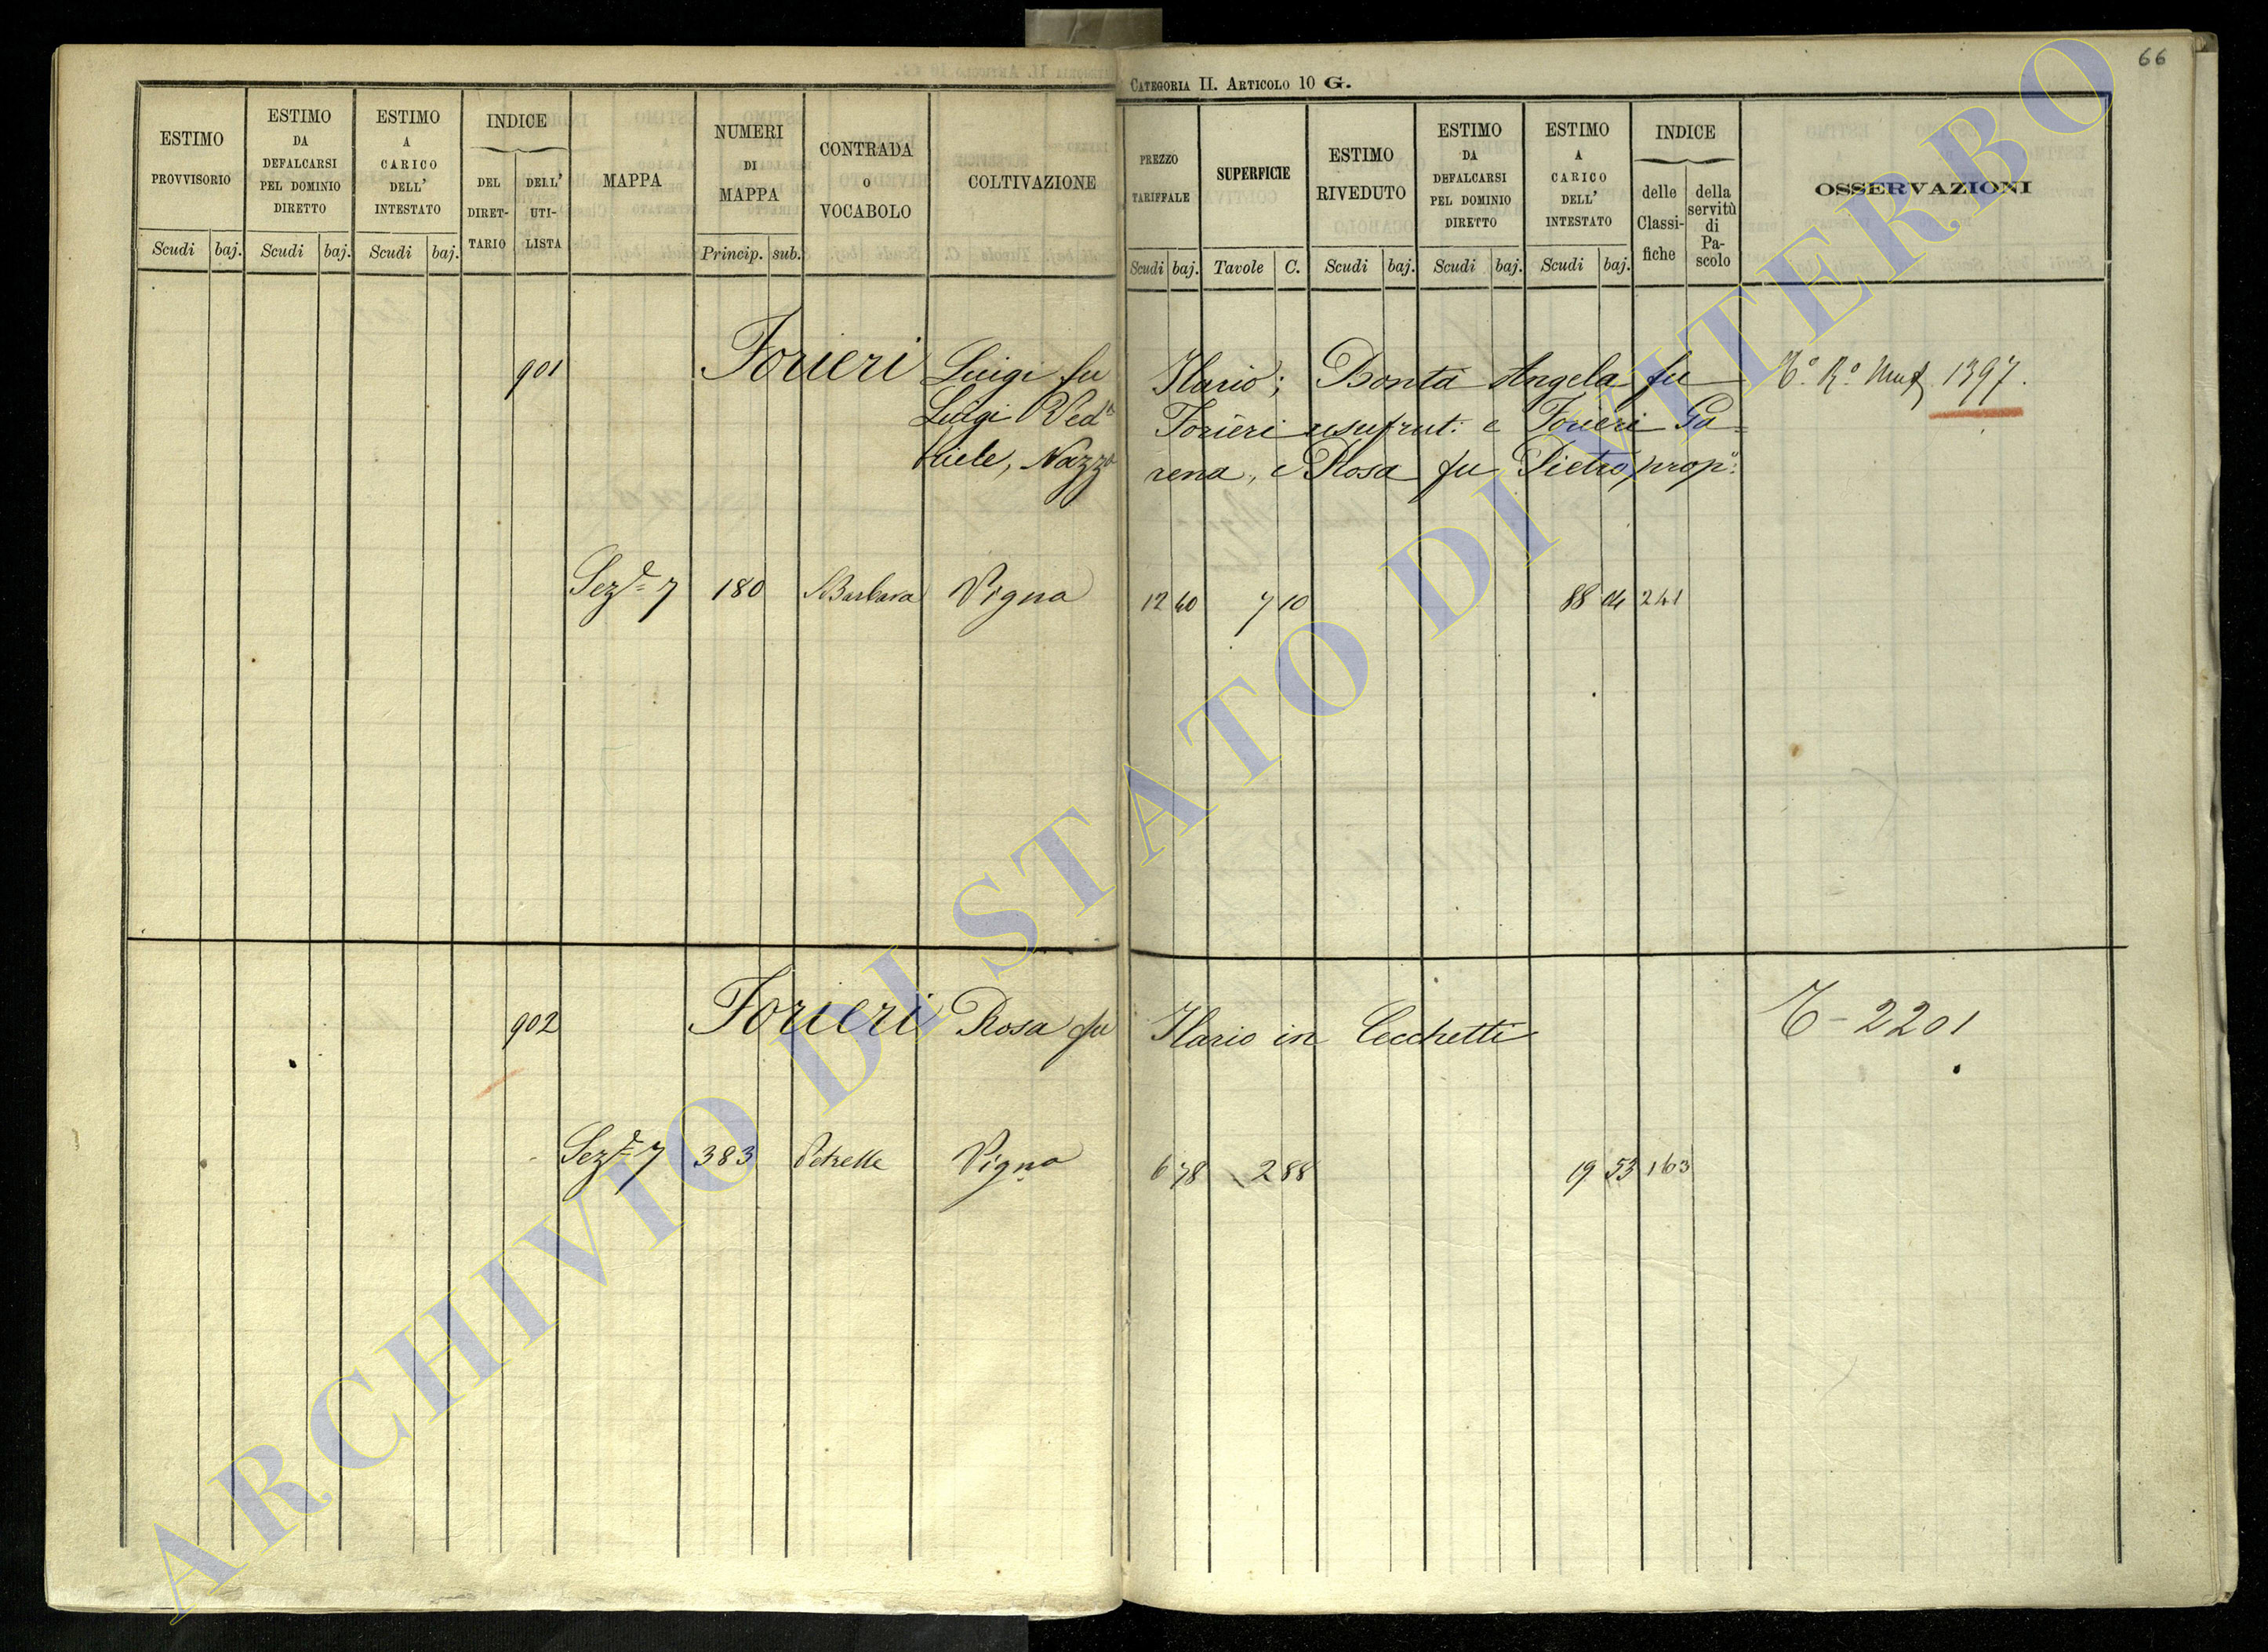 66
CATEGORIA II. ARTICOLO 10 G.
ESTIMO PROVVISORIO
ESTIMO DA DEFALCARSI PEL DOMINIO DIRETTO
ESTIMO A CARICO DELL' INTESTATO
INDICE
DEL DIRET-TARIO
DELL' UTI-LISTA
MAPPA
NUMERI DI MAPPA
CONTRADA O VOCABOLO
COLTIVAZIONE
PREZZO TARIFFALE
SUPERFICIE
ESTIMO RIVEDUTO
ESTIMO DA DEFALCARSI PEL DOMINIO DIRETTO
ESTIMO A CARICO DELL' INTESTATO
INDICE
delle Classi-fiche
della servitù di Pa-scolo
OSSERVAZIONI
Scudi baj. Scudi baj. Scudi baj. Princip. sub. Scudi baj. Tavole C. Scudi baj. Scudi baj. Scudi baj.
901 Forieri Luigi fu Ilario; Bonta Angela fu 1397.
Luigi Ved.a Forieri usufrut: e Forieri Ga=
briele, Nazza rena, e Rosa fu Pietro prop:
Sez.e 7 180 Barbara Vigna 12 40 7 10 88 04 241
902 Forieri Rosa fu Ilario in Cecchetti 2201
Sez.e 7 383 Petrelle Vigna 6 78 2 88 19 53 163
ARCHIVIO DI STATO DI VITERBO